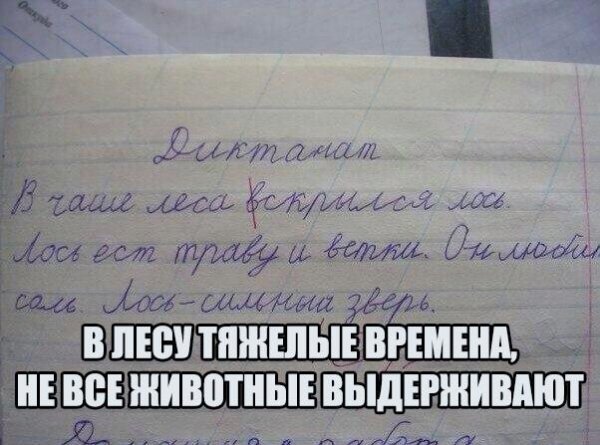 Откуда
Диктанат
В чаше леса вскрылся лось.
Лось ест траву и ветки. Он любит
соль. Лось-сильный зверь.
В ЛЕСУ ТЯЖЕЛЫЕ ВРЕМЕНА,
НЕ ВСЕ ЖИВОТНЫЕ ВЫДЕРЖИВАЮТ
Домашняя работа